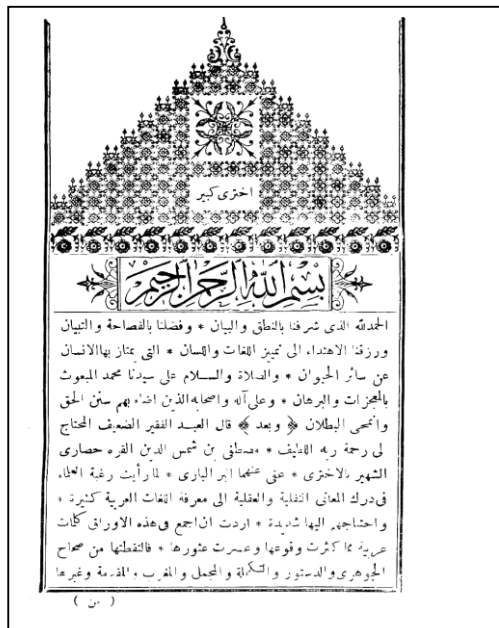 اخترى كبير
بسم الله الرحمن الرحيم
الحمدلله الذى شرفنا بالنطق والبيان * وفضلنا بالفصاحة والتبيان
ورزقنا الاهتداء الى تمييز اللغات واللسان * التى يمتاز بها الانسان
عن سائر الحيوان * والصلاة والسلام على سيدنا محمد المبعوث
بالمعجزات والبرهان * وعلى آله واصحابه الذين اضاء بهم سنن الحق
وانمحى البطلان ﴿ وبعد ﴾ قال العبد الفقير الضعيف المحتاج
لى رحمة ربه اللطيف * مصطفى بن شمس الدين القره حصارى
الشهير بالاخترى * عفى عنهما البر البارى * لما رأيت رغبة العلماء
فى درك المعانى النقلية والعقلية الى معرفة اللغات العربية كثيرة *
واحتياجهم اليها شديدة * اردت ان اجمع فى هذه الاوراق كلمات
عربية مما كثرت وقوعها وعسرت عثورها * فالتقطتها من صحاح
الجوهرى والدستور والتكملة والمجمل والمغرب والمقدمة وغيرها
( من )